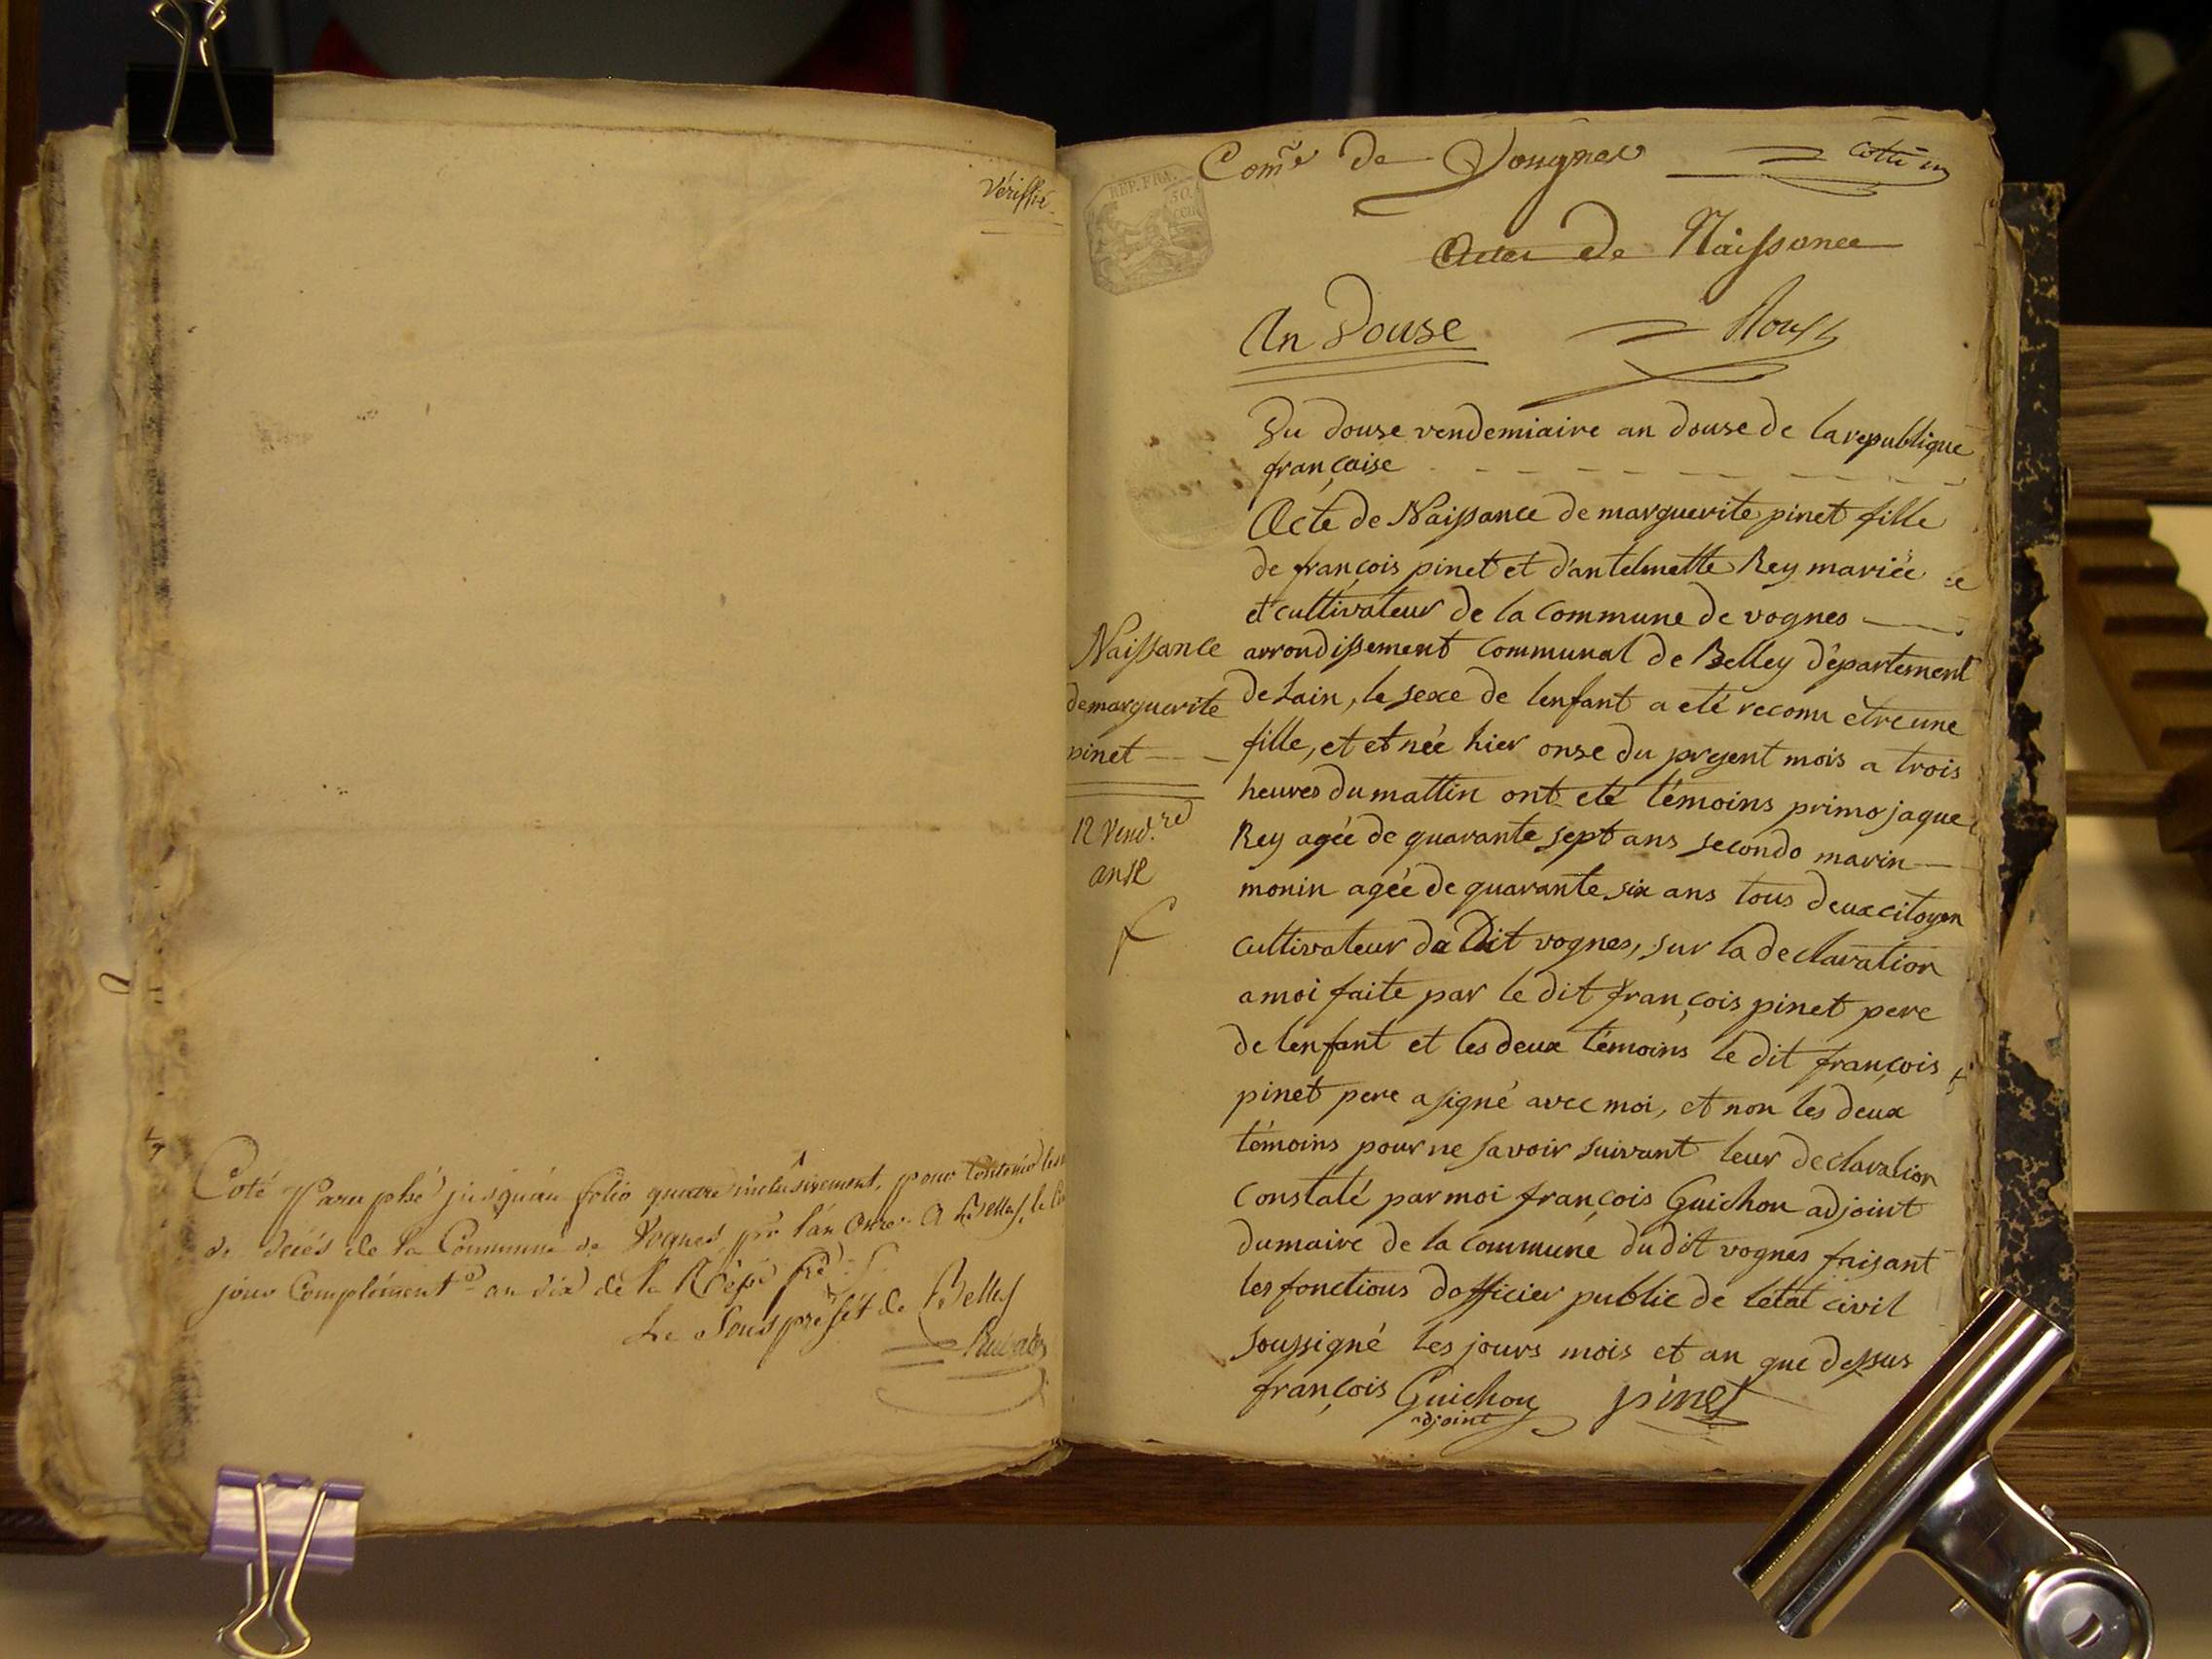 Vériffié
Coté & Paraphé jusqu'au folio quatre inclusivement, pour contenir les
de décés de la Commune de Vognes pr l'an Onze. A Belley, le
jour Complément.e an dix de la Répe fse
Le Souspréfét de Belley
REP. FRA.
50
Com.e de Vougnes
Actes de Naissance
An Douse
Du douse vendemiaire an douse de la republique
française
Acte de Naissance de marguerite pinet fille
de françois pinet et d'antelmette Rey mariée
et cultivateur de la commune de vognes
arrondissement communal de Belley département
de Lain, le sexe de lenfant a eté reconu etre une
fille, et et née hier onse du present mois a trois
heures du mattin ont eté témoins primo jaque
Rey agée de quarante sept ans secondo marin
monin agée de quarante six ans tous deux citoyen
cultivateur du Dit vognes, sur la declaration
a moi faite par le dit françois pinet pere
de lenfant et les deux témoins le dit françois
pinet pere a signé avec moi, et non les deux
témoins pour ne savoir suivant leur declaration
Constaté par moi françois Guichon adjoint
du maire de la commune du dit vognes faisant
les fonctions dofficier public de létat civil
soussigné les jours mois et an que dessus
françois Guichon pinet
adjoint
Naissance
de marguerite
pinet
12 Vend.re
an 12